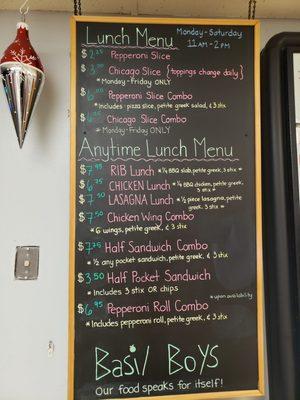 Lunch Menu
Monday-Saturday
11AM-2PM
$2.25 Pepperoni Slice
Chicago Slice {toppings change daily}
*Monday-Friday ONLY
Pepperoni Slice Combo
*Includes: pizza slice, petite greek salad, & 3 stix
Chicago Slice Combo
*Monday-Friday ONLY
Anytime Lunch Menu
$7.95 RIB Lunch *¼ BBQ slab, petite greek, 3 stix*
$6.75 CHICKEN Lunch *¼ BBQ chicken, petite greek, 3 stix*
$7.50 LASAGNA Lunch *½ piece lasagna, petite greek, 3 stix*
$7.50 Chicken Wing Combo
*6 wings, petite greek, & 3 stix
$7.25 Half Sandwich Combo
*½ any pocket sandwich, petite greek, & 3 stix
$3.50 Half Pocket Sandwich
*Includes 3 stix OR chips
*upon availability
$6.95 Pepperoni Roll Combo
*Includes pepperoni roll, petite greek, & 3 stix
Basil Boys
Our food speaks for itself!